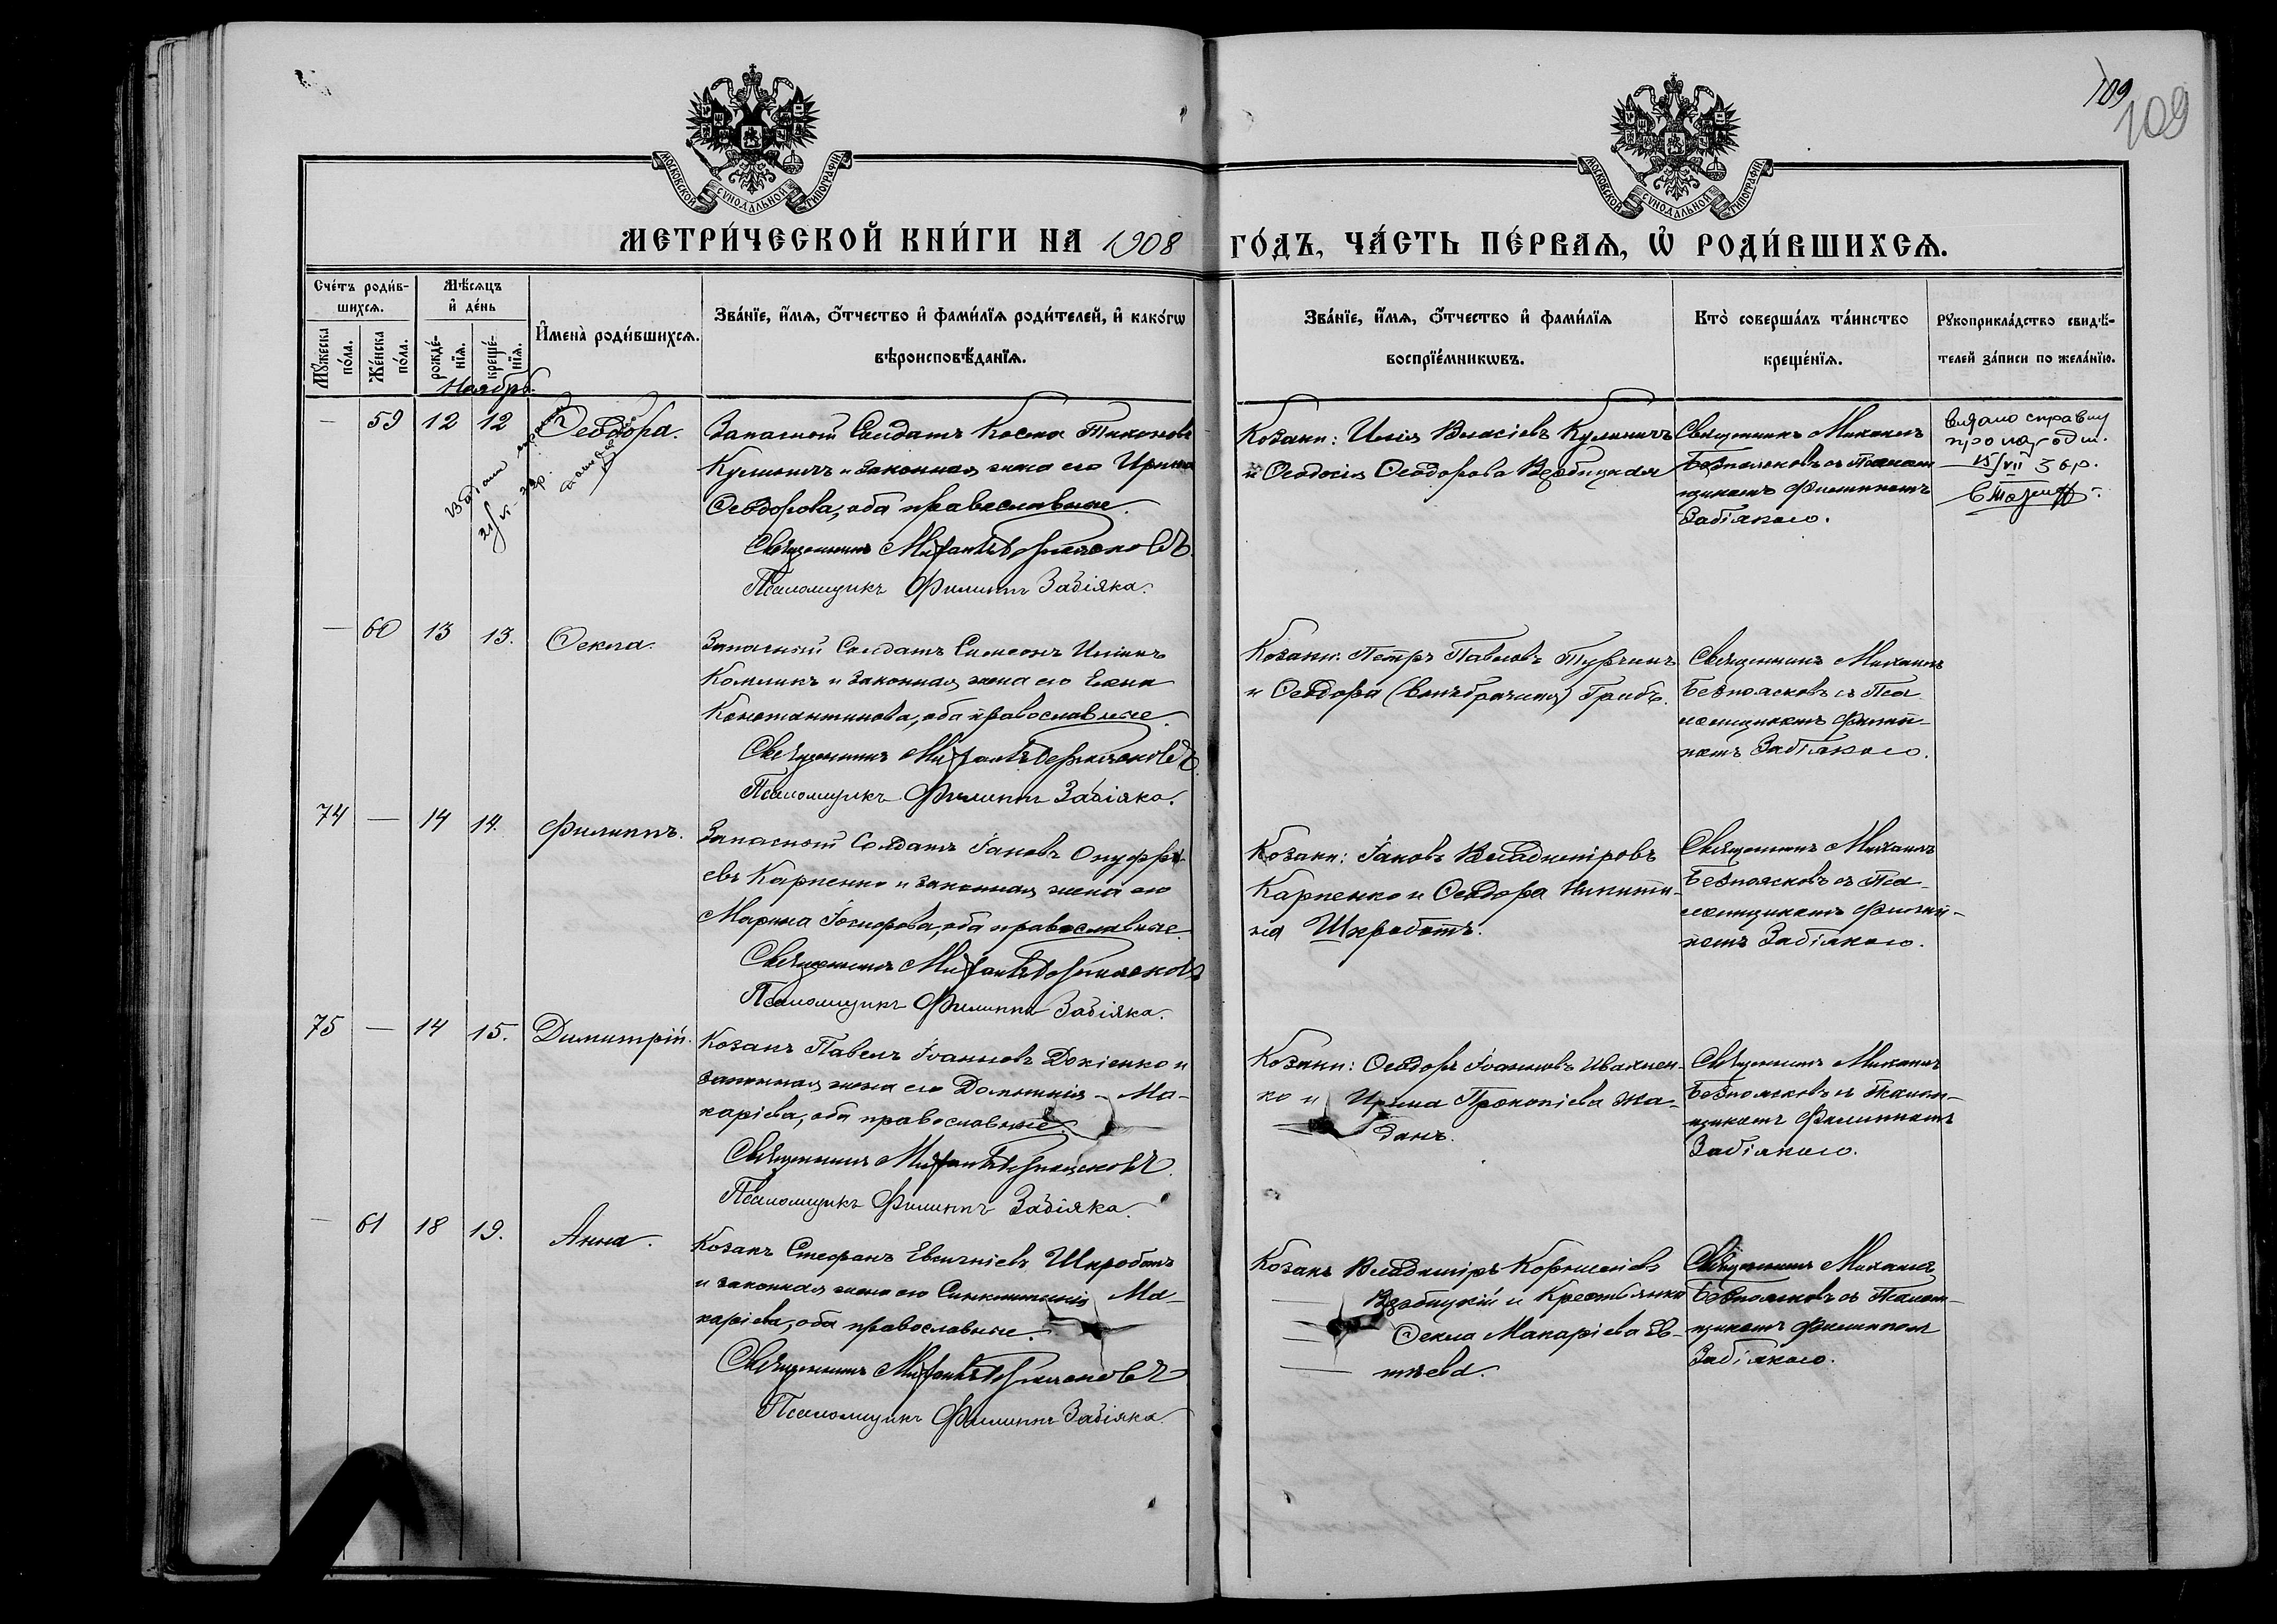 109
109
МОСКОВСКОЙ СѴНОДАЛЬНОЙ ТИПОГРАФІИ
МОСКОВСКОЙ СѴНОДАЛЬНОЙ ТИПОГРАФІИ
МЕТРИ́ЧЕСКОЙ КНИ́ГИ НА 1908 ГО́ДЪ, ЧА́СТЬ ПЕ́РВАѦ, Ѡ РОДИ́ВШИХСѦ.
Сче́тъ роди́в-
шихсѧ.
Мꙋжеска по́ла.
Же́нска по́ла.
Мѣсѧцъ
и де́нь
рожде́-
нїѧ.
креще́-
нїѧ.
Имена̀ роди́вшихсѧ.
Зва́нїе, и́мѧ, ѻ́тчество и фами́лїѧ роди́телей, и како́гѡ
вѣроисповѣ́данїѧ.
Зва́нїе, и́мѧ, ѻ́тчество и фами́лїѧ
воспрїе́мникѡвъ.
Кто̀ соверша́лъ та́инство
креще́нїѧ.
Рꙋкоприкла́дство свидѣ́-
телей за́писи по жела́нїю.
Ноябрь.
— 59 12 12 Ѳеодора.
Запасной Солдатъ Косма Тихоновъ
Кулиничъ и законная жена его Ирина
Ѳеодорова, оба православные.
Священникъ Михаилъ Безпоясковъ.
Псаломщикъ Филиппъ Забіяка.
Козаки: Илія Власіевъ Кулиничъ
и Ѳеодосія Ѳеодорова Вербицкая
Священникъ Михаилъ
Безпоясковъ съ Псалом
щикомъ Филиппомъ
Забіякою.
видано справку
про нар один.
15/VII 36р.
— 60 13 13. Ѳекла.
Запасной Солдатъ Симеонъ Иліинъ
Комликъ и законная жена его Елена
Константинова, оба православные.
Священникъ Михаилъ Безпоясковъ.
Псаломщикъ Филиппъ Забіяка.
Козаки: Петръ Павловъ Турчинъ
и Ѳеодора (внѣбрачная) Грибъ.
Священникъ Михаилъ
Безпоясковъ съ Пса
ломщикомъ Филип-
помъ Забіякою.
74 — 14 14. Филиппъ.
Запасной Солдатъ Іаковъ Онуфрі-
евъ Карпенко и законная жена его
Марина Іосифова, оба православные.
Священникъ Михаилъ Безпоясковъ
Псаломщикъ Филиппъ Забіяка.
Козаки: Іаковъ Владиміровъ
Карпенко и Ѳеодора Никити-
на Шкроботъ.
Священникъ Михаилъ
Безпоясковъ съ Пса-
ломщикомъ Филип-
помъ Забіякою.
75 — 14 15. Димитрій.
Козакъ Павелъ Іоанновъ Докіенко и
законная жена его Домникія Ма-
каріева, оба православные.
Священникъ Михаилъ Безпоясковъ.
Псаломщикъ Филиппъ Забіяка.
Козаки: Ѳеодоръ Іоанновъ Ивахнен-
ко и Ирина Прокопіева Жа-
данъ.
Священникъ Михаилъ
Безпоясковъ съ Псалом-
щикомъ Филиппомъ
Забіякою.
— 61 18 19. Анна.
Козакъ Стефанъ Евсигніевъ Шкроботъ
и законная жена его Синклитикія Ма-
каріева, оба православные.
Священникъ Михаилъ Безпоясковъ
Псаломщикъ Филиппъ Забіяка.
Козакъ Владиміръ Корниліевъ
Вербицкій и Крестьянка
Ѳекла Макаріева Ев-
тѣева.
Священникъ Михаилъ
Безпоясковъ съ Псалом-
щикомъ Филиппомъ
Забіякою.